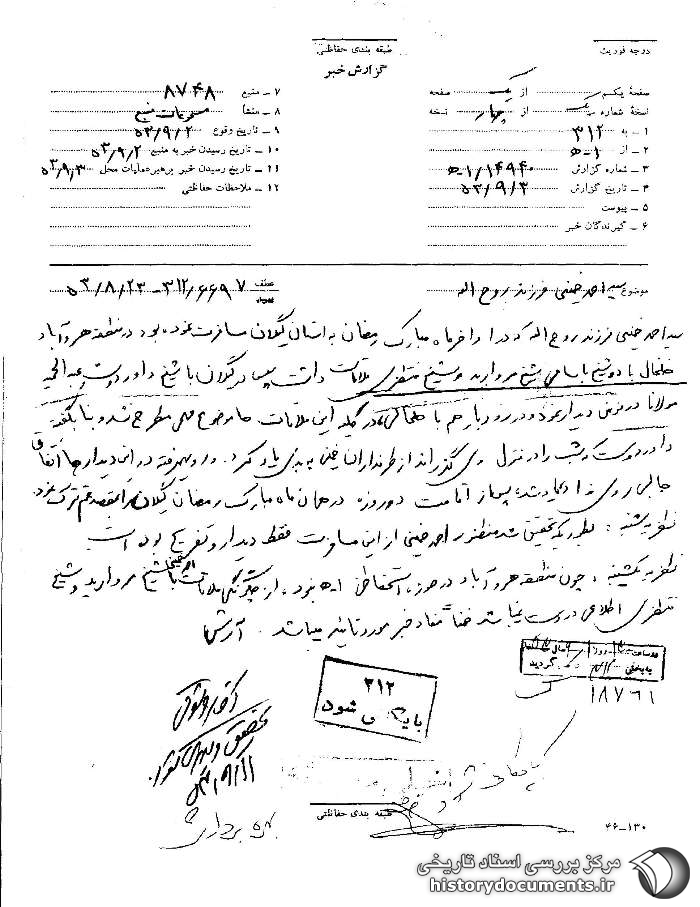 درجه فوریت
طبقه بندی حفاظتی
گزارش خبر
صفحهٔ یکم از یک صفحه
نسخهٔ شماره یک از چهار نسخه
۱ - به ۳۱۲
۲ - از ۱-ه
۳ - شماره گزارش ۱۴۹۴۰/۱-ه
۴ - تاریخ گزارش ۵۳/۹/۳
۵ - پیوست
۶ - گیرندگان خبر
۷ - منبع ۸۷۴۸
۸ - منشأ مسموعات منبع
۹ - تاریخ وقوع ۵۳/۹/۲
۱۰ - تاریخ رسیدن خبر به منبع ۵۳/۹/۲
۱۱ - تاریخ رسیدن خبر برهبر عملیات محل ۵۳/۹/۳
۱۲ - ملاحظات حفاظتی
موضوع سید احمد خمینی فرزند روح اله
عطف ۳۱۲/۶۶۹۷ - ۵۳/۸/۲۳
سید احمد خمینی فرزند روح اله که در اواخر ماه مبارک رمضان به استان گیلان مسافرت نموده بود در منطقه هروآباد
خلخال با دو شیخ باسامی شیخ مروارید و شیخ منتظری ملاقات داشت سپس در گیلان با شیخ داوردوست عبدالحمید
مولانا در دیدار نموده و در رودبار هم با خلخالی در کلیه این ملاقات ها موضوع مهمی مطرح نشد و بنا بگفته
داوردوست شب را در منزل وی گذراند از طرفداران خمینی به بدی یاد کرد. در این دیدارها اتفاق
جالبی روی نداد پس از اقامت دو روزه در همان ماه مبارک رمضان گیلان را بقصد قم ترک نمود.
نظریه شنبه : بطوریکه تحقیق شد منظور احمد خمینی از این مسافرت فقط دیدار و تفریح بوده است
نظریه یکشنبه : چون منطقه هروآباد در حوزه استحفاظی ۱-ه نبوده از چگونگی ملاقات با شیخ مروارید و شیخ
منتظری اطلاعی در دست نمیباشد ضمناً مفاد خبر مورد تائید میباشد. آرش
۱۸۷۶۱
۳۱۲
بایگانی شود
۵۳/۹/۱۱
بهره برداری
طبقه بندی حفاظتی
۴۶-۱۳۰
مرکز بررسی اسناد تاریخی
historydocuments.ir